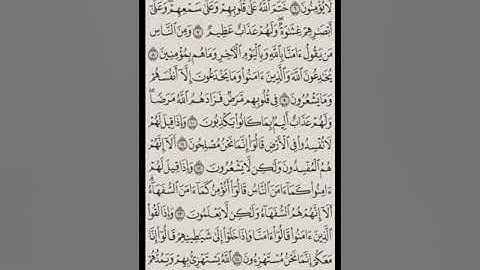 لَا يُؤْمِنُونَ ٦ خَتَمَ ٱللَّهُ عَلَىٰ قُلُوبِهِمْ وَعَلَىٰ سَمْعِهِمْ وَعَلَىٰٓ
أَبْصَٰرِهِمْ غِشَٰوَةٌ وَلَهُمْ عَذَابٌ عَظِيمٌ ٧ وَمِنَ ٱلنَّاسِ
مَن يَقُولُ ءَامَنَّا بِٱللَّهِ وَبِٱلْيَوْمِ ٱلْأٓخِرِ وَمَا هُم بِمُؤْمِنِينَ ٨
يُخَٰدِعُونَ ٱللَّهَ وَٱلَّذِينَ ءَامَنُوا۟ وَمَا يَخْدَعُونَ إِلَّآ أَنفُسَهُمْ
وَمَا يَشْعُرُونَ ٩ فِى قُلُوبِهِم مَّرَضٌ فَزَادَهُمُ ٱللَّهُ مَرَضًا
وَلَهُمْ عَذَابٌ أَلِيمٌۢ بِمَا كَانُوا۟ يَكْذِبُونَ ١٠ وَإِذَا قِيلَ لَهُمْ
لَا تُفْسِدُوا۟ فِى ٱلْأَرْضِ قَالُوٓا۟ إِنَّمَا نَحْنُ مُصْلِحُونَ ١١ أَلَآ إِنَّهُمْ
هُمُ ٱلْمُفْسِدُونَ وَلَٰكِن لَّا يَشْعُرُونَ ١٢ وَإِذَا قِيلَ لَهُمْ
ءَامِنُوا۟ كَمَآ ءَامَنَ ٱلنَّاسُ قَالُوٓا۟ أَنُؤْمِنُ كَمَآ ءَامَنَ ٱلسُّفَهَآءُ
أَلَآ إِنَّهُمْ هُمُ ٱلسُّفَهَآءُ وَلَٰكِن لَّا يَعْلَمُونَ ١٣ وَإِذَا لَقُوا۟
ٱلَّذِينَ ءَامَنُوا۟ قَالُوٓا۟ ءَامَنَّا وَإِذَا خَلَوْا۟ إِلَىٰ شَيَٰطِينِهِمْ قَالُوٓا۟ إِنَّا
مَعَكُمْ إِنَّمَا نَحْنُ مُسْتَهْزِءُونَ ١٤ ٱللَّهُ يَسْتَهْزِئُ بِهِمْ وَيَمُدُّهُمْ